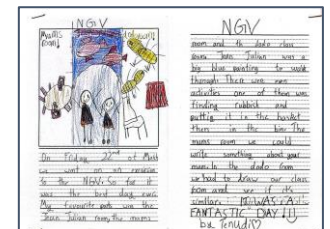 NGV
Mums
room!
On Friday 22nd of March
we went on an excursion
to the NGV. So far it
was the best day ever.
My favourite parts was the
Jean Julian room, the mums
NGV
room and the dado class
room. Jean Julian was a
big blue painting to walk
through. There were
activities one of them was
finding rubbish and
putting it in the basket
then in the bin. The
mums room we could
write something about your
mum. In the dado room
we had to draw our class
room and see if it's
similar. IT WAS A
FANTASTIC DAY!!
by Tenudi